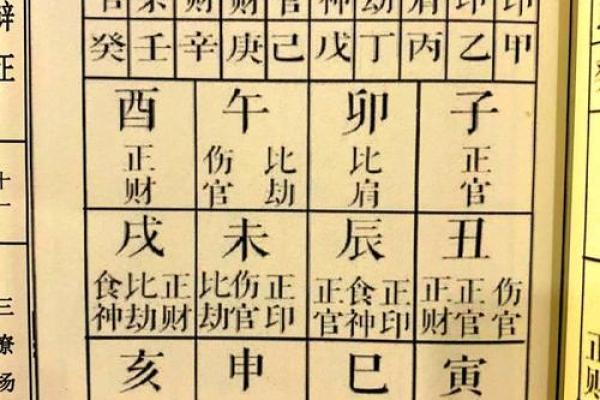 官 财 财 官 神 劫 肩 印 印
癸 壬 辛 庚 己 戊 丁 丙 乙 甲
酉 午 卯 子
正财 伤官 比劫 比肩 正官
戌 未 辰 丑
食神 比劫 正财 比劫 伤官 正印 正官 食神 正印 正财 正官 伤官
亥 申 巳 寅
正
十一
三僚杨